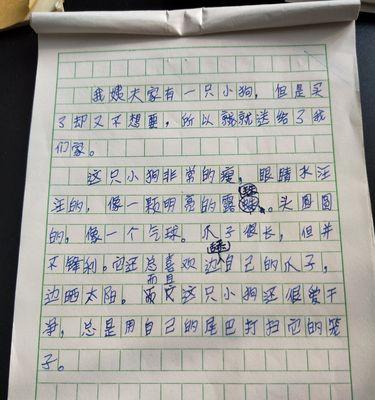 我姨夫家有一只小狗，但是买
了却又不想要，所以就就送给了我
们家。
这只小狗非常的瘦，眼睛水汪
汪的，像一颗明亮的露珠。头圆圆
的，像一个气球。爪子很长，但并
不锋利。它还总喜欢边舔自己的爪子，
边晒太阳。而且这只小狗还很爱干
净，总是用自己的尾巴打扫它的笼
子。